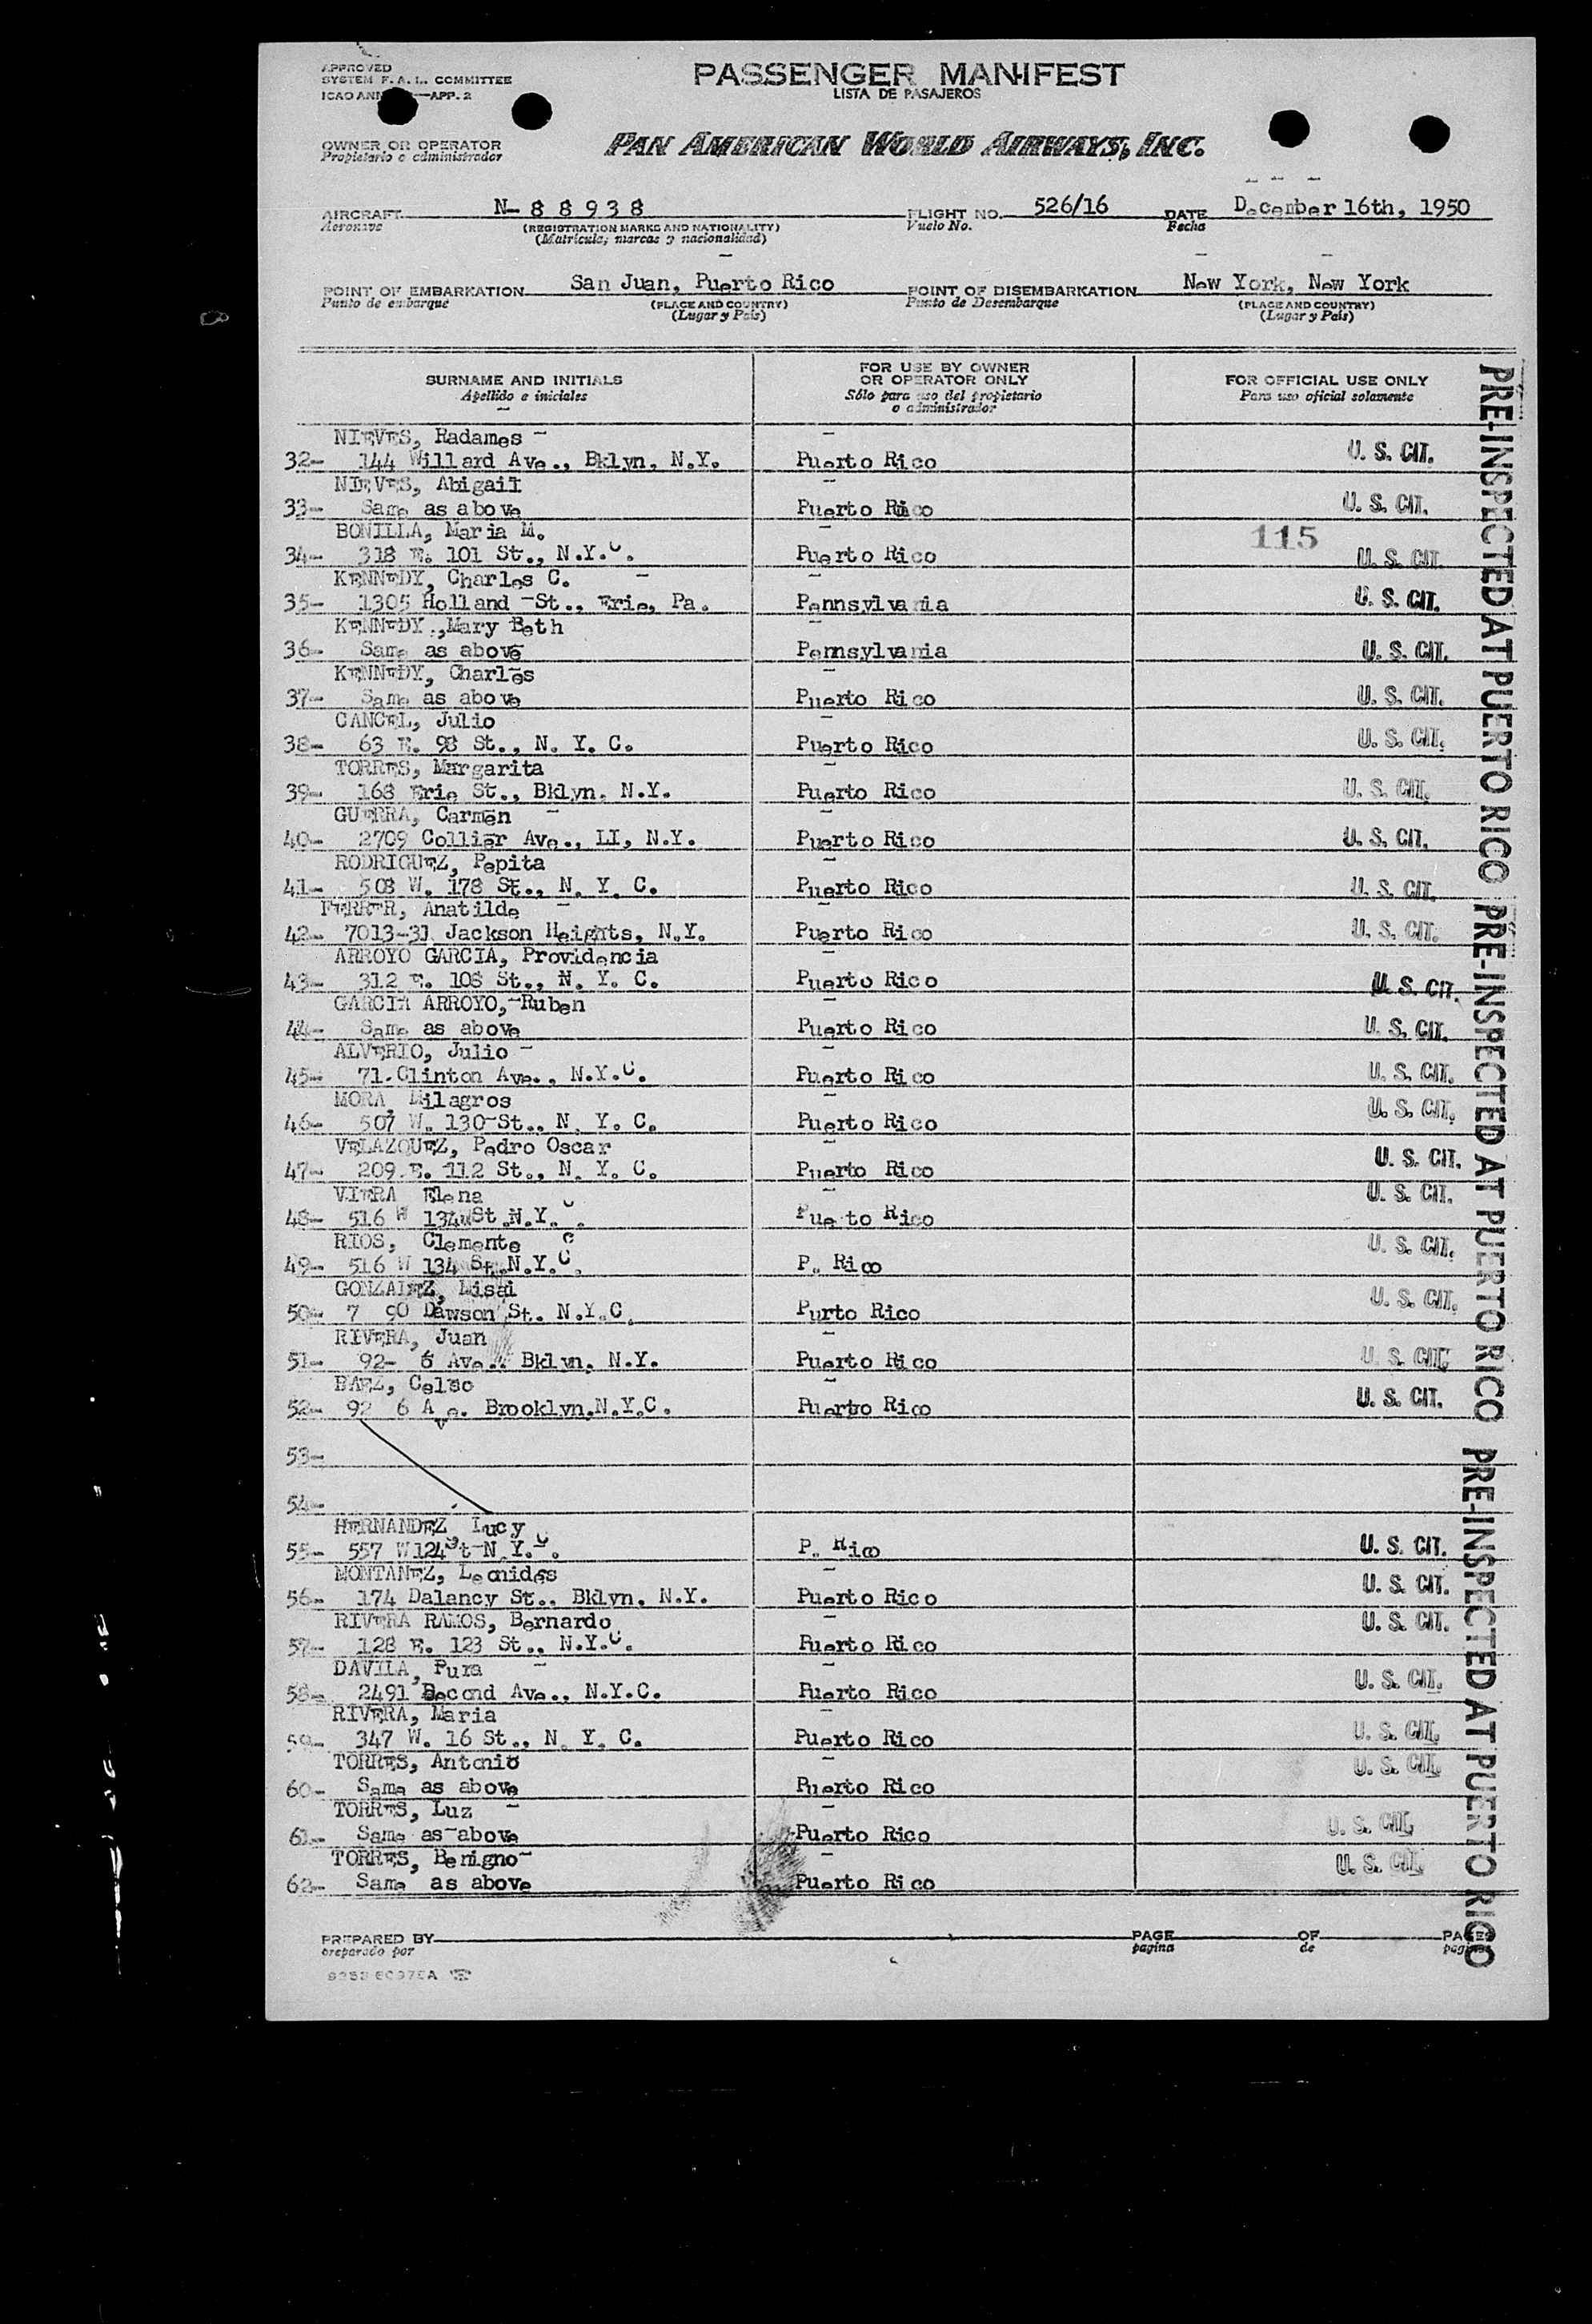 APPROVED
SYSTEM F. A. L. COMMITTEE
ICAO —APP. 2
PASSENGER MANIFEST
LISTA DE PASAJEROS
OWNER OR OPERATOR
Propietario o administrador
PAN AMERICAN WORLD AIRWAYS, INC.
AIRCRAFT N-88938 FLIGHT NO. 526/16 DATE December 16th, 1950
Aeronave (REGISTRATION MARKS AND NATIONALITY) Vuelo No. Fecha
(Matricula; marcas y nacionalidad)
POINT OF EMBARKATION San Juan, Puerto Rico POINT OF DISEMBARKATION New York, New York
Punto de embarque (PLACE AND COUNTRY) Punto de Desembarque (PLACE AND COUNTRY)
(Lugar y País) (Lugar y País)
SURNAME AND INITIALS
Apellido e iniciales
FOR USE BY OWNER
OR OPERATOR ONLY
Sólo para uso del propietario
o administrador
FOR OFFICIAL USE ONLY
Para uso oficial solamente
NIEVES, Radames
32- 144 Willard Ave., Bklyn, N.Y. Puerto Rico U. S. CIT.
NIEVES, Abigail
33- Same as above Puerto Rico U. S. CIT.
BONILLA, Maria M. 115
34- 318 E. 101 St., N.Y.C. Puerto Rico U. S. CIT.
KENNEDY, Charles C.
35- 1305 Holland St., Erie, Pa. Pennsylvania U. S. CIT.
KENNEDY.,Mary Beth
36- Same as above Pennsylvania U. S. CIT.
KENNEDY, Charles
37- Same as above Puerto Rico U. S. CIT.
CANCEL, Julio
38- 63 E. 98 St., N. Y. C. Puerto Rico U. S. CIT.
TORRES, Margarita
39- 168 Erie St., Bklyn. N.Y. Puerto Rico U. S. CIT.
GUERRA, Carmen
40- 2709 Collier Ave., LI, N.Y. Puerto Rico U. S. CIT.
RODRIGUEZ, Pepita
41- 508 W. 178 St., N. Y. C. Puerto Rico U. S. CIT.
FERRER, Anatilde
42- 7013-31 Jackson Heights, N.Y. Puerto Rico U. S. CIT.
ARROYO GARCIA, Providencia
43- 312 E. 108 St., N. Y. C. Puerto Rico U. S. CIT.
GARCIA ARROYO, Ruben
44- Same as above Puerto Rico U. S. CIT.
ALVERIO, Julio
45- 71 Clinton Ave., N.Y.C. Puerto Rico U. S. CIT.
MORA, Milagros
46- 507 W. 130 St., N. Y. C. Puerto Rico U. S. CIT.
VELAZQUEZ, Pedro Oscar
47- 209 E. 112 St., N. Y. C. Puerto Rico U. S. CIT.
VIERA Elena
48- 516 W 134 St.N.Y.C. Pue to Rico U. S. CIT.
RIOS, Clemente
49- 516 W 134 St.N.Y.C. P. Rico U. S. CIT.
GONZALEZ, Misai
50- 7 90 Dawson St. N.Y.C. Purto Rico U. S. CIT.
RIVERA, Juan
51- 92- 6 Ave., Bklyn. N.Y. Puerto Rico U. S. CIT.
BAEZ, Celso
52- 92 6 Ave. Brooklyn.N.Y.C. Puerto Rico U. S. CIT.
53-
54-
HERNANDEZ, Lucy
55- 557 W124St N.Y.C. P. Rico U. S. CIT.
MONTANEZ, Leonides
56- 174 Dalancy St., Bklyn. N.Y. Puerto Rico U. S. CIT.
RIVERA RAMOS, Bernardo
57- 128 E. 123 St., N.Y.C. Puerto Rico U. S. CIT.
DAVILA, Pura
58- 2491 Second Ave., N.Y.C. Puerto Rico U. S. CIT.
RIVERA, Maria
59- 347 W. 16 St., N. Y. C. Puerto Rico U. S. CIT.
TORRES, Antonio
60- Same as above Puerto Rico U. S. CIT.
TORRES, Luz
61- Same as above Puerto Rico U. S. CIT.
TORRES, Benigno
62- Same as above Puerto Rico U. S. CIT.
PRE-INSPECTED AT PUERTO RICO PRE-INSPECTED AT PUERTO RICO PRE-INSPECTED AT PUERTO RICO
PREPARED BY PAGE OF PAGES
preparado por pagina de